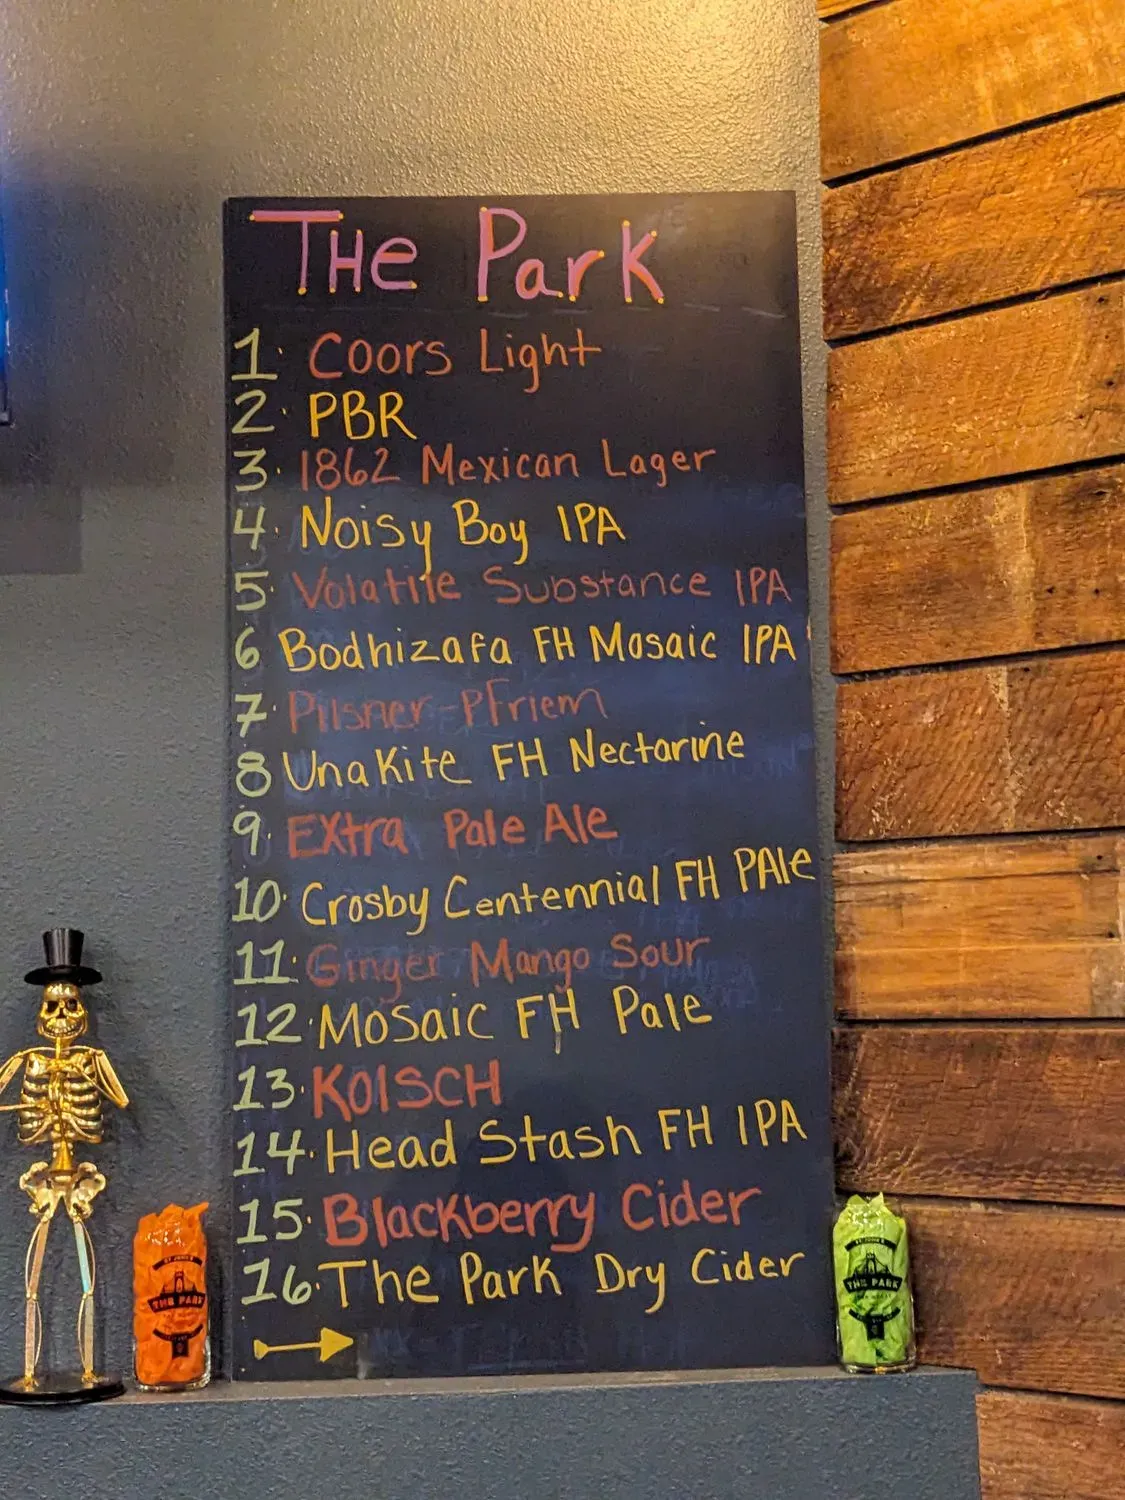 THe Park
1. Coors Light
2. PBR
3. 1862 Mexican Lager
4. Noisy Boy IPA
5. Volatile Substance IPA
6 Bodhizafa FH Mosaic IPA
7. Pilsner-PFriem
8 UnaKite FH Nectarine
9. Extra Pale Ale
10. Crosby Centennial FH PAle
11. Ginger Mango Sour
12. Mosaic FH Pale
13. KOlSCH
14. Head Stash FH IPA
15. Blackberry Cider
16. The Park Dry Cider
ST. JOHN'S
THE PARK
ST. JOHN'S
THE PARK